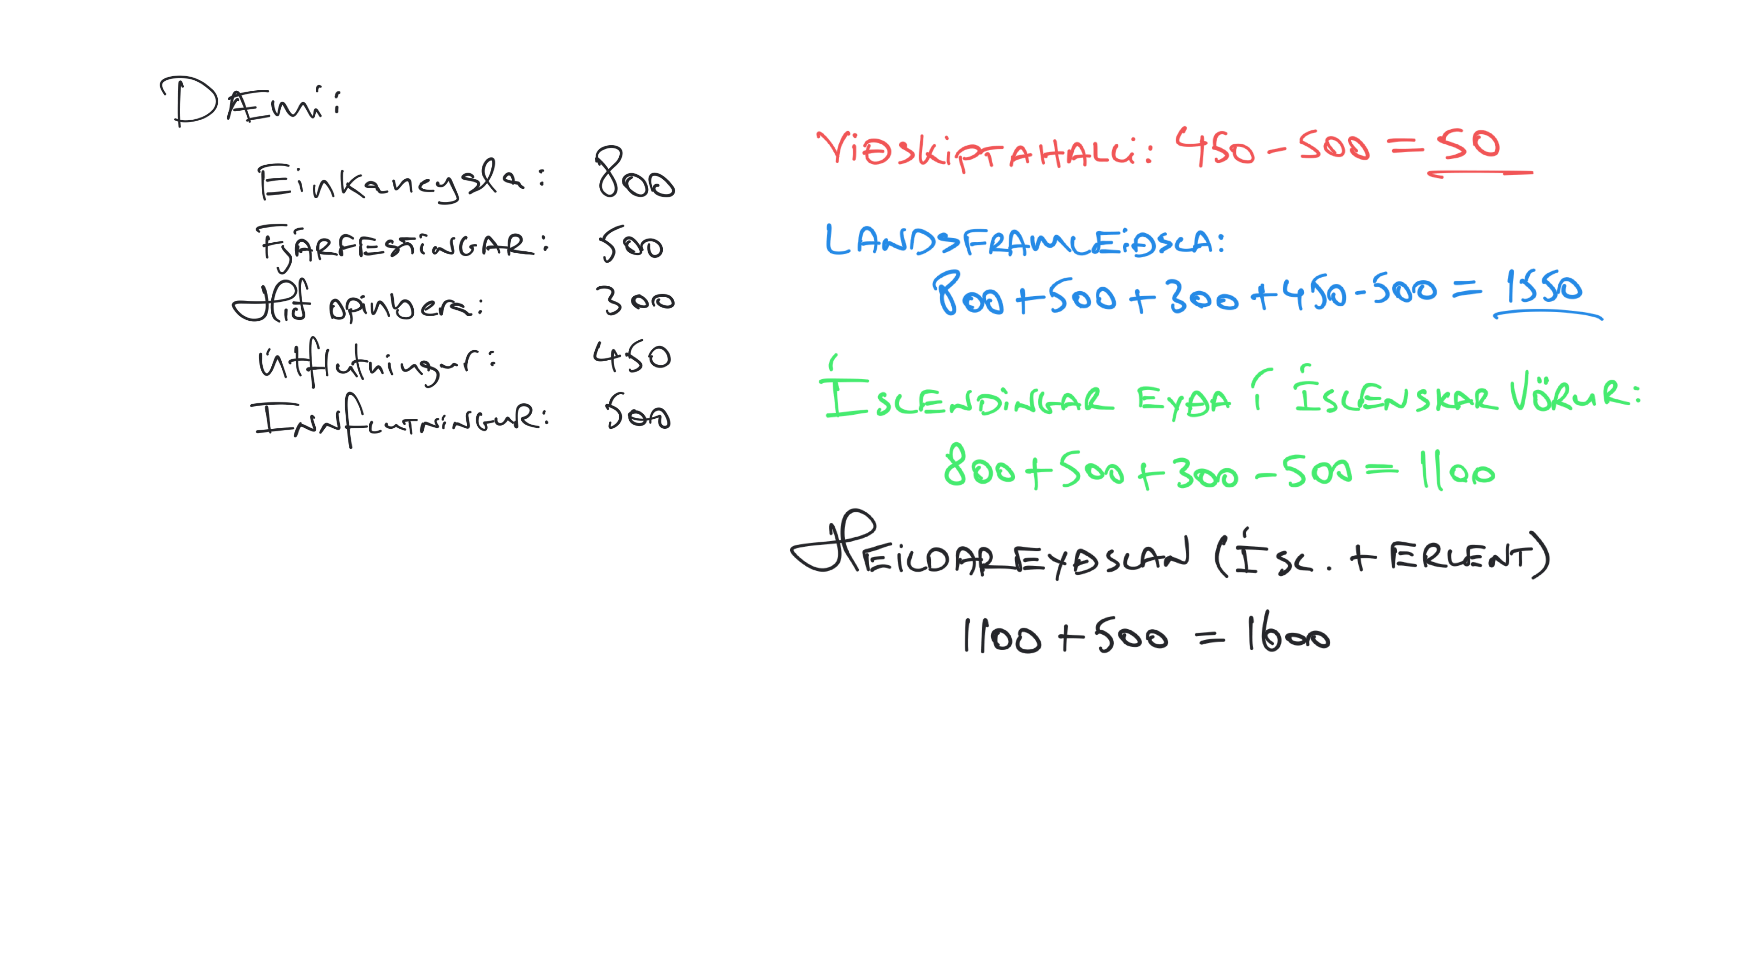 Dæmi:
Einkaneysla: 800
Fjárfestingar: 500
Hið opinbera: 300
Útflutningur: 450
Innflutningur: 500
Viðskiptahalli: 450 - 500 = 50
Landsframleiðsla:
800 + 500 + 300 + 450 - 500 = 1550
Íslendingar eyða í íslenskar vörur:
800 + 500 + 300 - 500 = 1100
Heildareyðslan (ísl. + erlent)
1100 + 500 = 1600